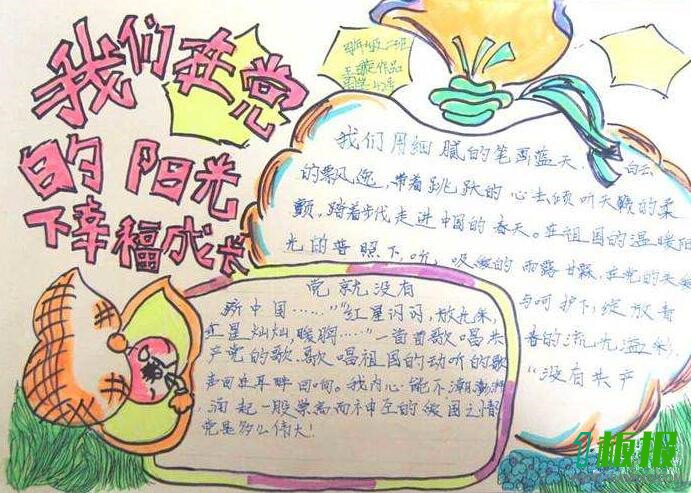 我们在党
的阳光
下幸福成长
二班
作品
我们用细腻的笔画蓝天、白云
的飘逸,带着跳跃的心去倾听天籁的柔
颤,踏着步伐走进中国的春天。在祖国的温暖阳
光的普照下,听,吸吮的雨露甘霖,在党的关爱
与呵护下,绽放青
春的流光溢彩,
“没有共产
党就没有
新中国……”“红星闪闪,放光彩,
红星灿灿,暖胸……”一首首歌唱共
产党的歌,歌唱祖国的动听的歌
声回在耳畔回响。我内心能不潮澎湃
,涌起一股崇高而不由在的爱国之情
党是多么伟大!
板报